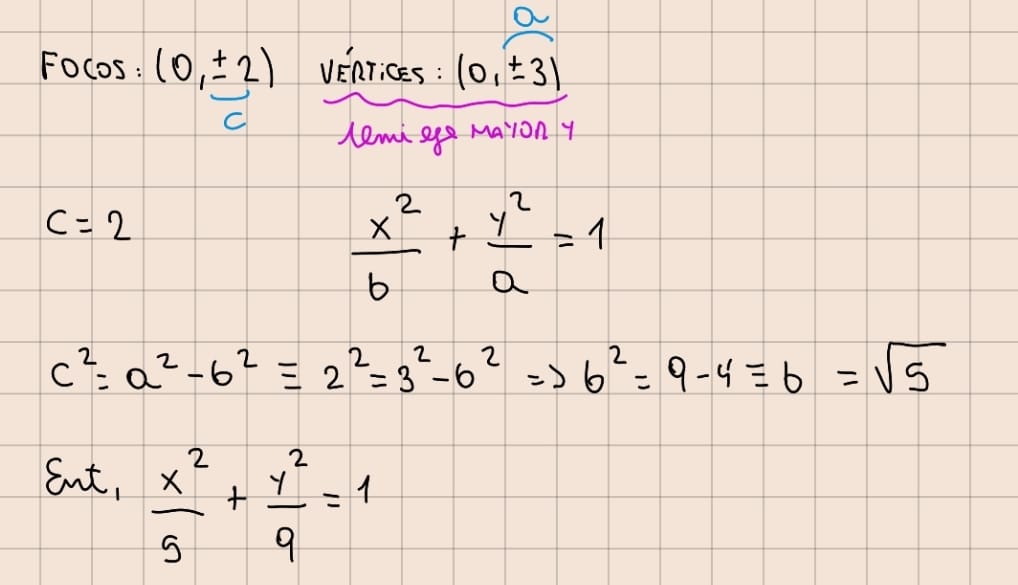 a
FOCOS: (0, ±2) VÉRTICES: (0, ±3)
c
semi eje MAYOR Y
C = 2
x² / b + y² / a = 1
c² = a² - b² ≡ 2² = 3² - b² => b² = 9 - 4 ≡ b = √5
Ent, x² / 5 + y² / 9 = 1